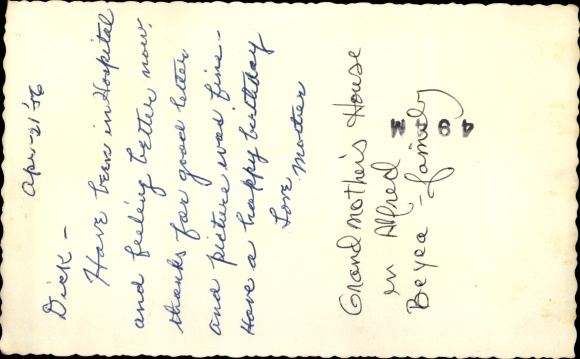 Apr-21'56
Dick -
Have been in Hospital
and feeling better now.
thanks for good letter
and picture was fine -
Have a happy birthday
Love Mother
Grandmother's House
in Alfred
Beyea - family